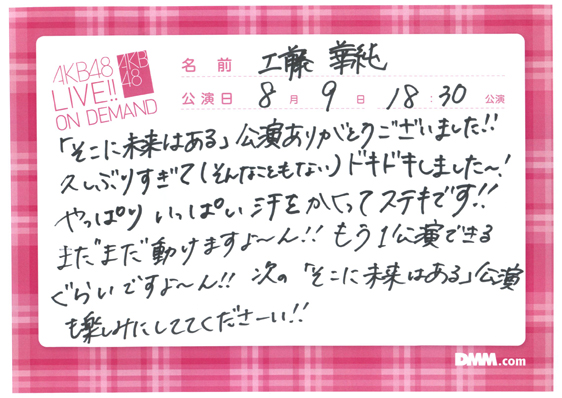 AKB48
LIVE!!
ON DEMAND
AKB
48
名前 工藤 華純
公演日 8月9日 18:30 公演
「そこに未来はある」公演ありがとうございました!!
久しぶりすぎて(そんなこともない)ドキドキしました〜!
やっぱりいっぱい汗をかくってステキです!!
まだまだ動けますよ〜ん!! もう1公演できる
ぐらいですよ〜ん!! 次の「そこに未来はある」公演
も楽しみにしててくださーい!!
DMM.com